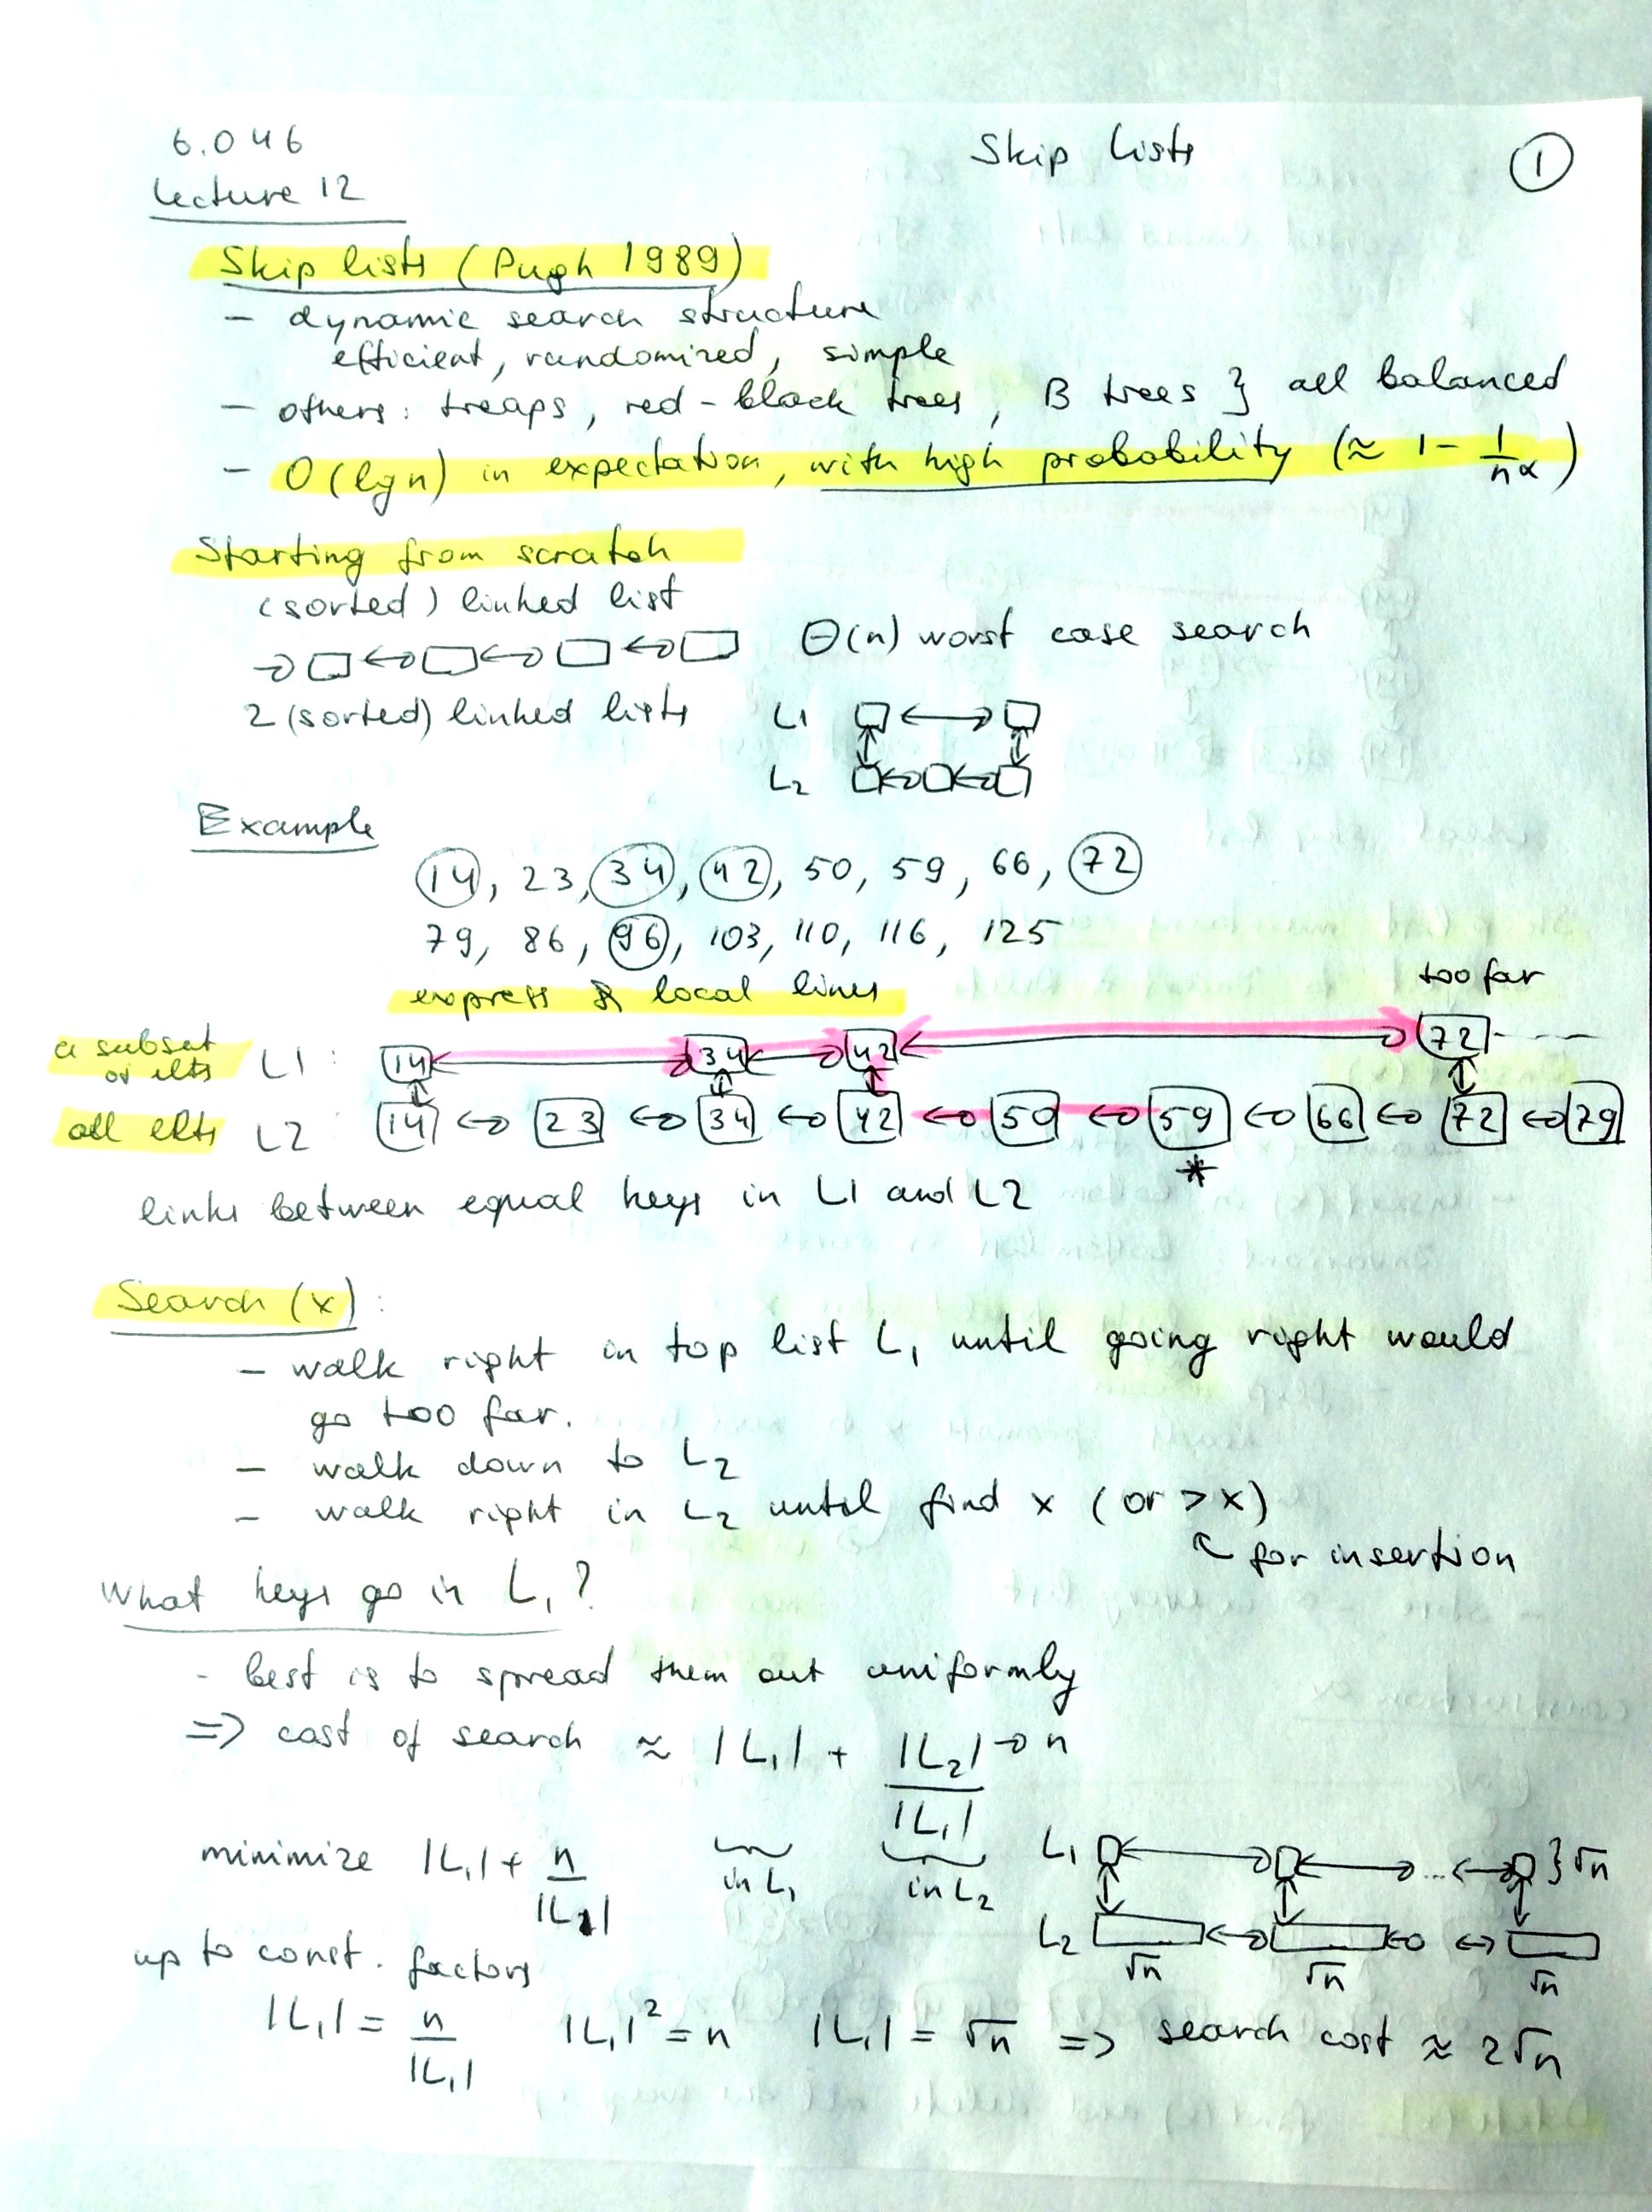 6.046
Lecture 12
Skip lists
1
Skip lists (Pugh 1989)
- dynamic search structure
efficient, randomized, simple
- others: treaps, red-black trees, B trees } all balanced
- O(lg n) in expectation, with high probability (≈ 1 - 1/n^α)
Starting from scratch
(sorted) linked list
Θ(n) worst case search
2 (sorted) linked lists
L1
L2
Example
14, 23, 34, 42, 50, 59, 66, 72
79, 86, 96, 103, 110, 116, 125
express & local lines
too far
a subset of elts L1: 14 34 42 72
all elts L2 14 23 34 42 50 59 66 72 79
*
links between equal keys in L1 and L2
Search (x):
- walk right in top list L₁ until going right would
go too far.
- walk down to L₂
- walk right in L₂ until find x (or > x)
for insertion
What keys go in L₁?
- best is to spread them out uniformly
=> cost of search ≈ |L₁| + |L₂|/|L₁| → n
in L₁ in L₂
minimize |L₁| + n/|L₁|
L₁ ... } √n
L₂ √n √n √n
up to const. factors
|L₁| = n/|L₁| |L₁|² = n |L₁| = √n => search cost ≈ 2√n